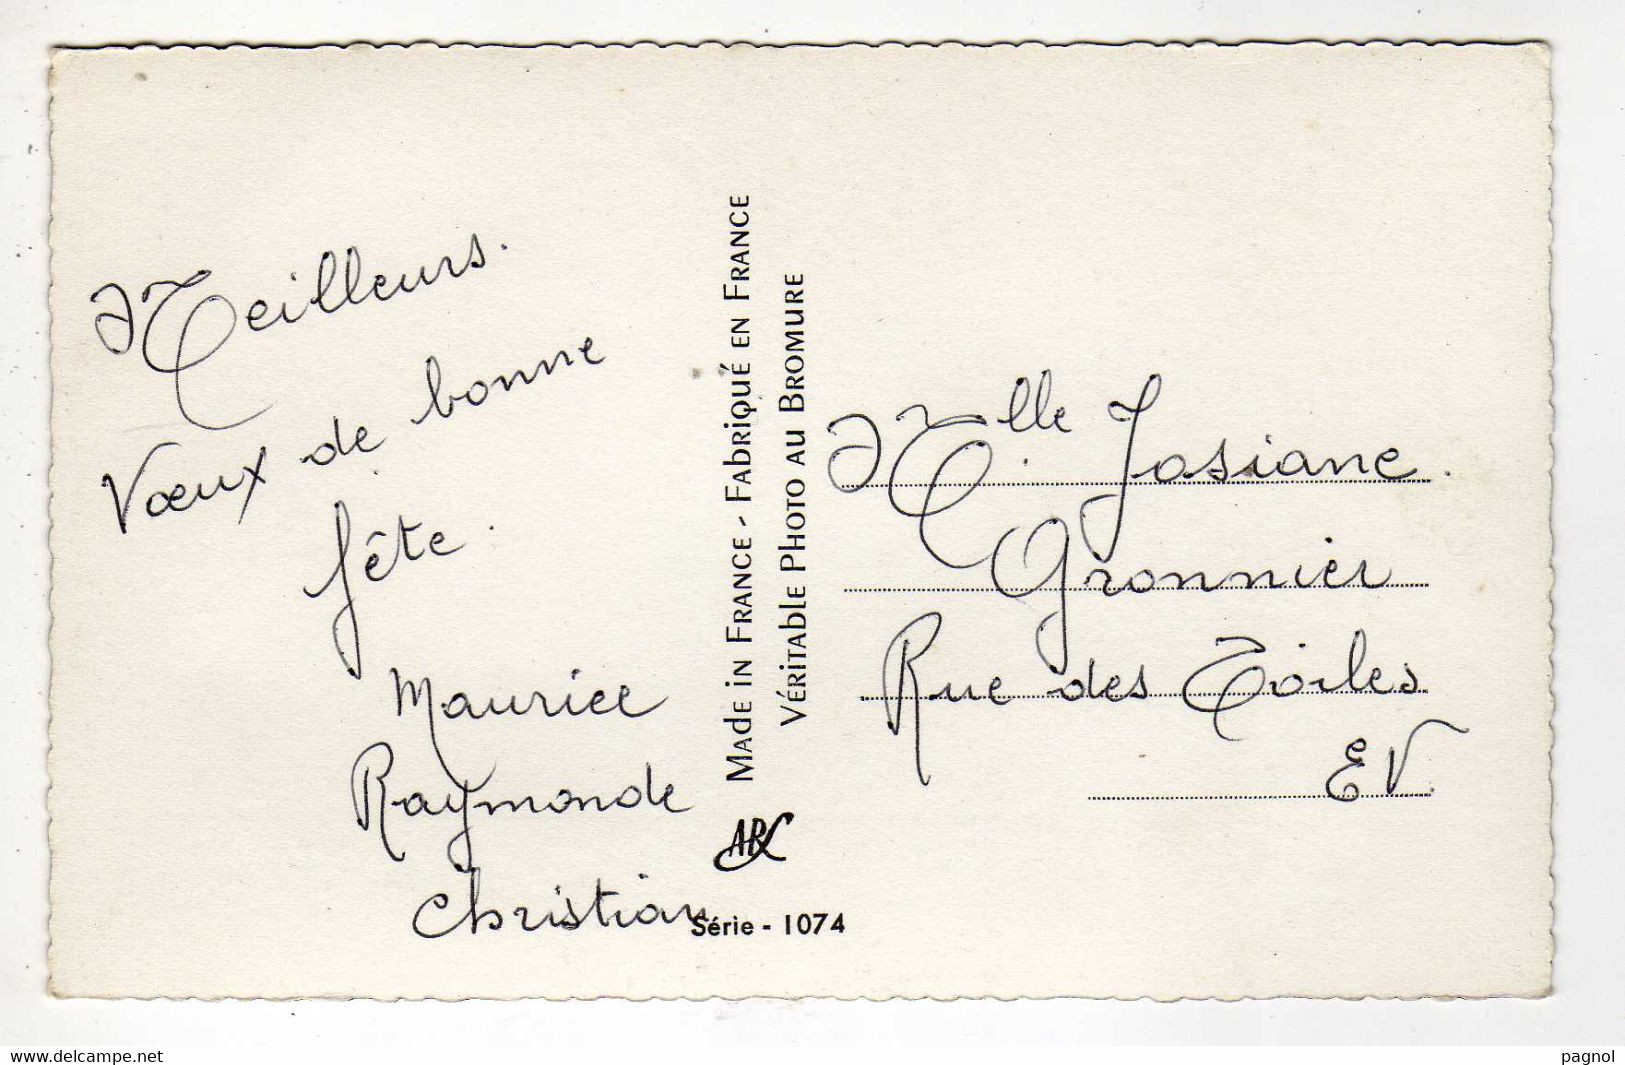 Meilleurs.
Vœux de bonne
fête.
Maurice
Raymonde
Christian
Made in France - Fabriqué en France
Véritable Photo au Bromure
Série - 1074
Melle Josiane.
Gronnier
Rue des Toiles
EV.
www.delcampe.net
pagnol